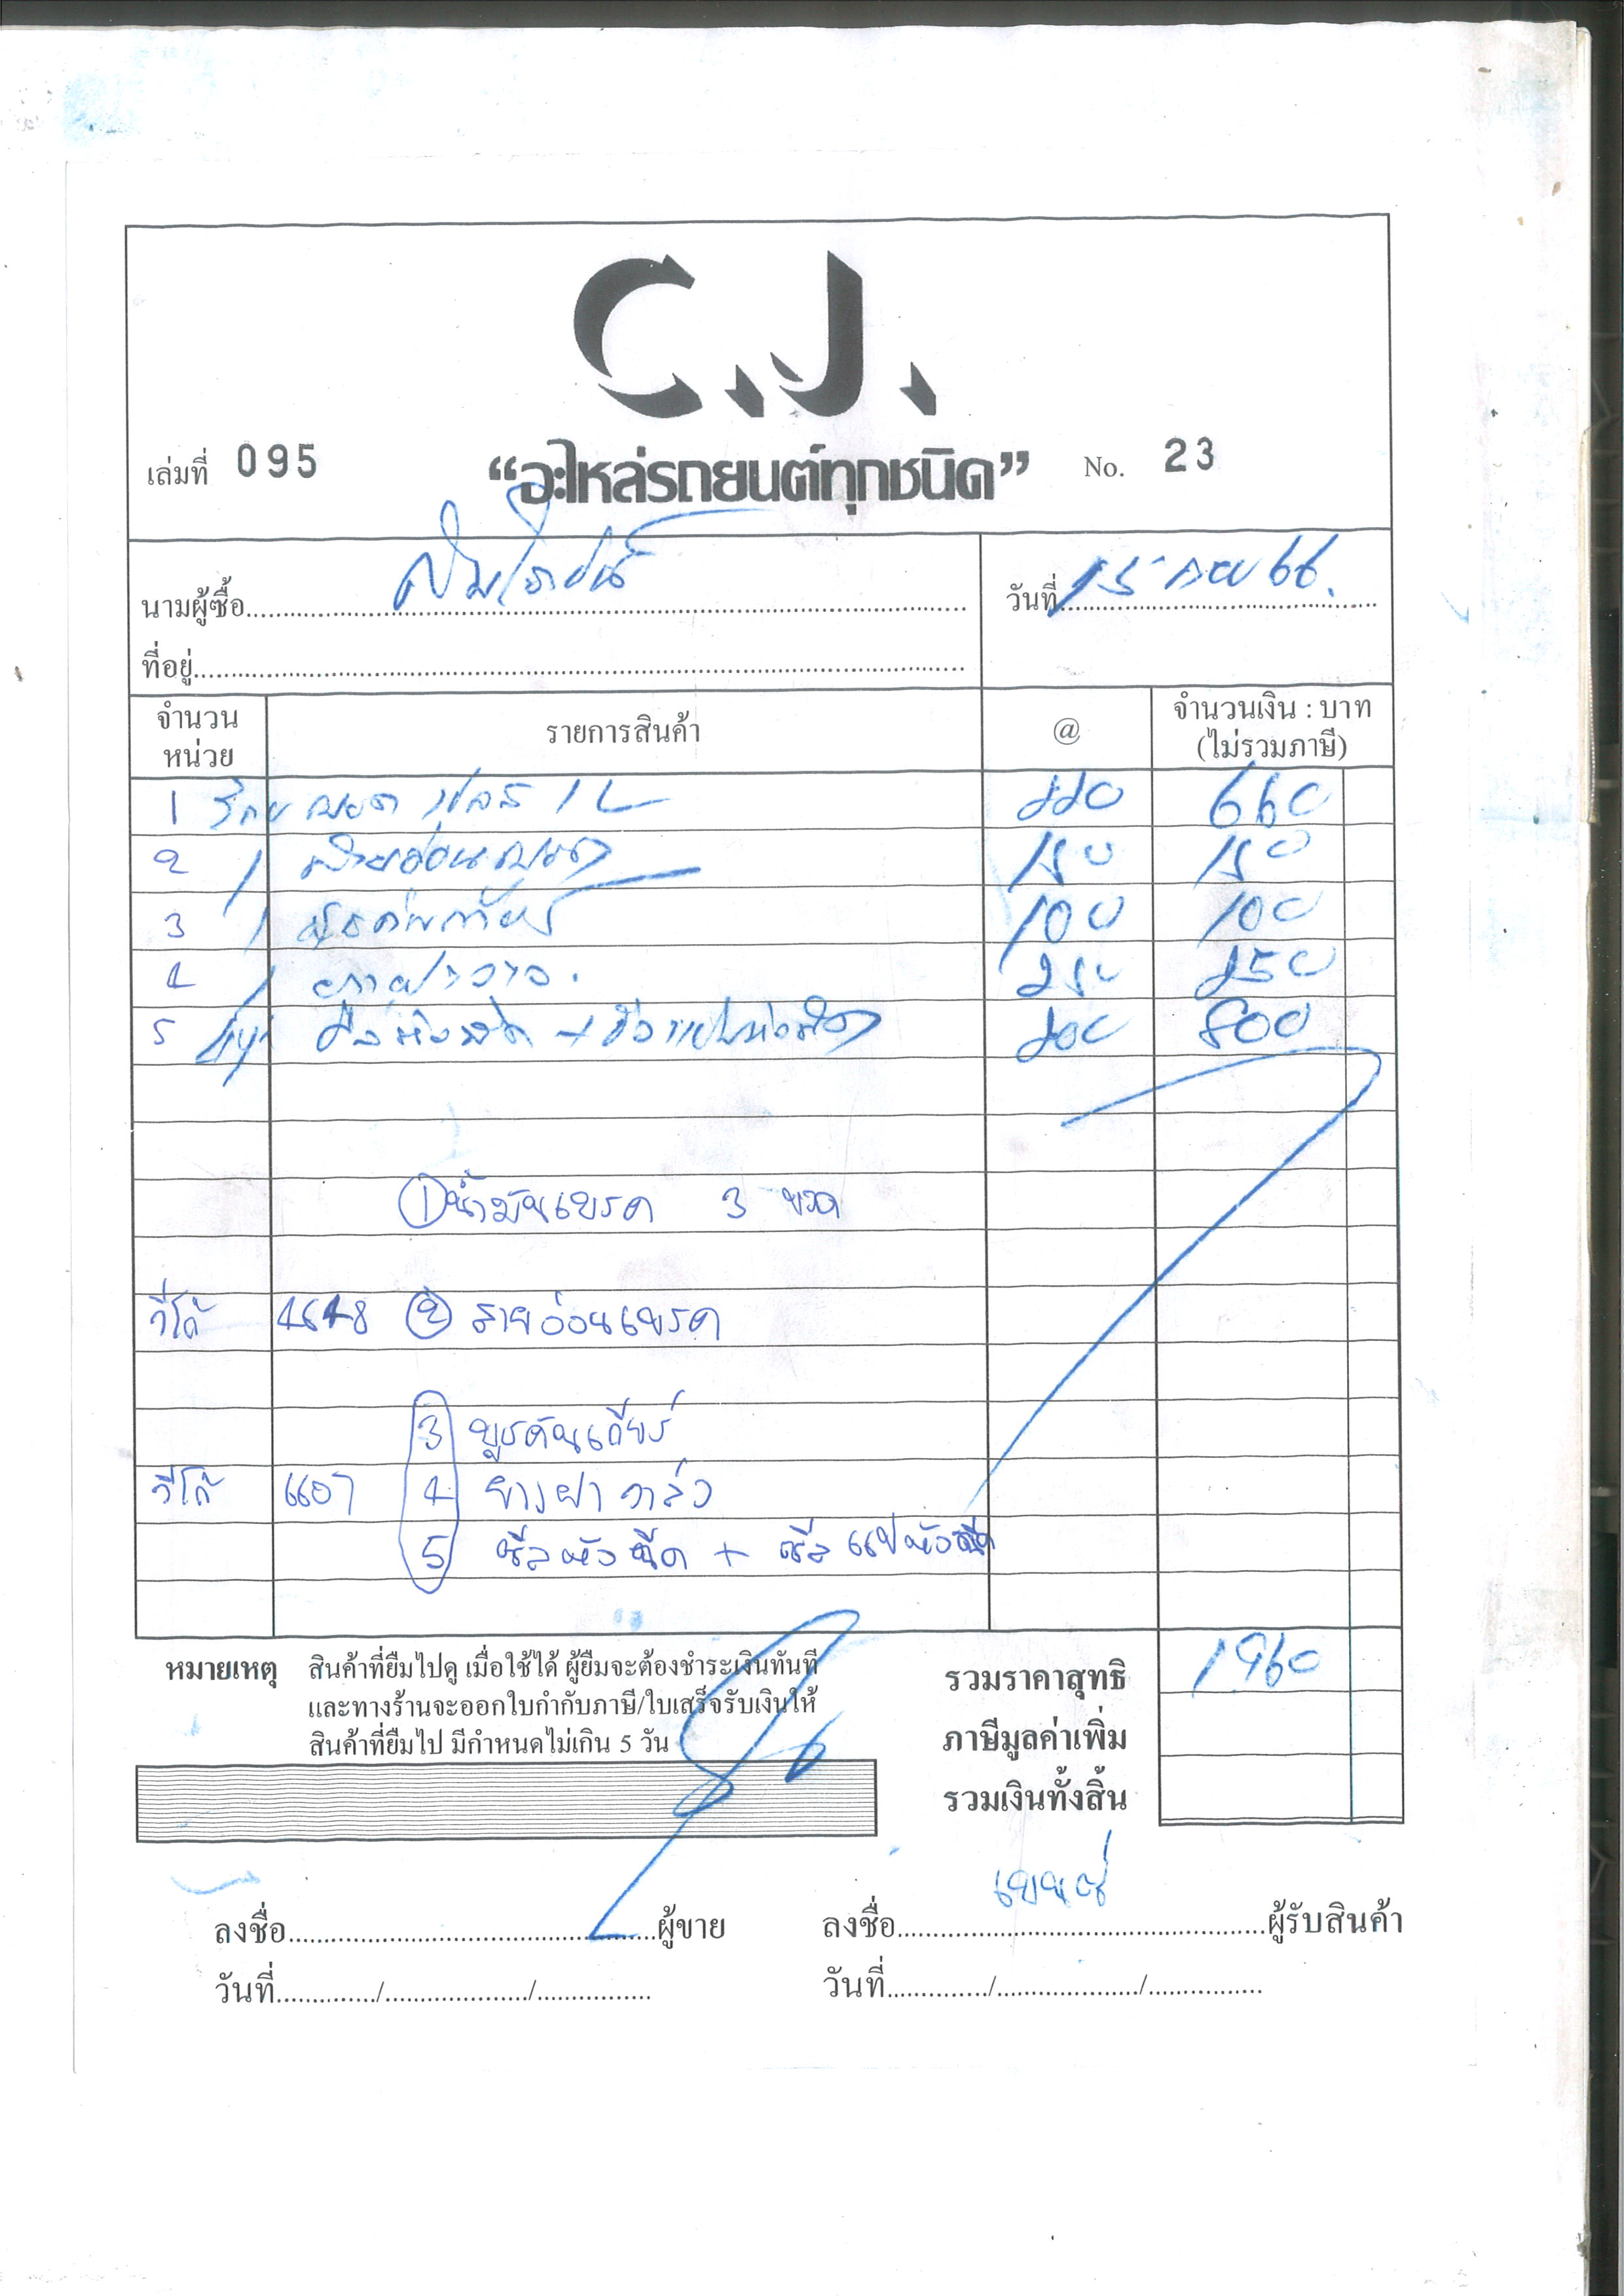 C.J.
เล่มที่ 095
“อะไหล่รถยนต์ทุกชนิด”
No. 23
นามผู้ซื้อ
วันที่ 15 กย 66.
ที่อยู่
จำนวน หน่วย รายการสินค้า @ จำนวนเงิน : บาท (ไม่รวมภาษี)
1 เบรค 1 L 220 660
2 1 สายอ่อนเบรค 150 150
3 1 100 100
4 1 250 250
5 200 800
① น้ำมันเบรค 3 ขวด
วีโก้ 4648 ② สายอ่อนเบรค
3 บูธคันเกียร์
วีโก้ 6607 4 ยางฝาวาล์ว
5 ซีลหัวฉีด + ซีลแปหัวฉีด
หมายเหตุ สินค้าที่ยืมไปดู เมื่อใช้ได้ ผู้ยืมจะต้องชำระเงินทันที
และทางร้านจะออกใบกำกับภาษี/ใบเสร็จรับเงินให้
สินค้าที่ยืมไป มีกำหนดไม่เกิน 5 วัน
รวมราคาสุทธิ 1960
ภาษีมูลค่าเพิ่ม
รวมเงินทั้งสิ้น
ลงชื่อ ผู้ขาย
ลงชื่อ ผู้รับสินค้า
วันที่ / /
วันที่ / /